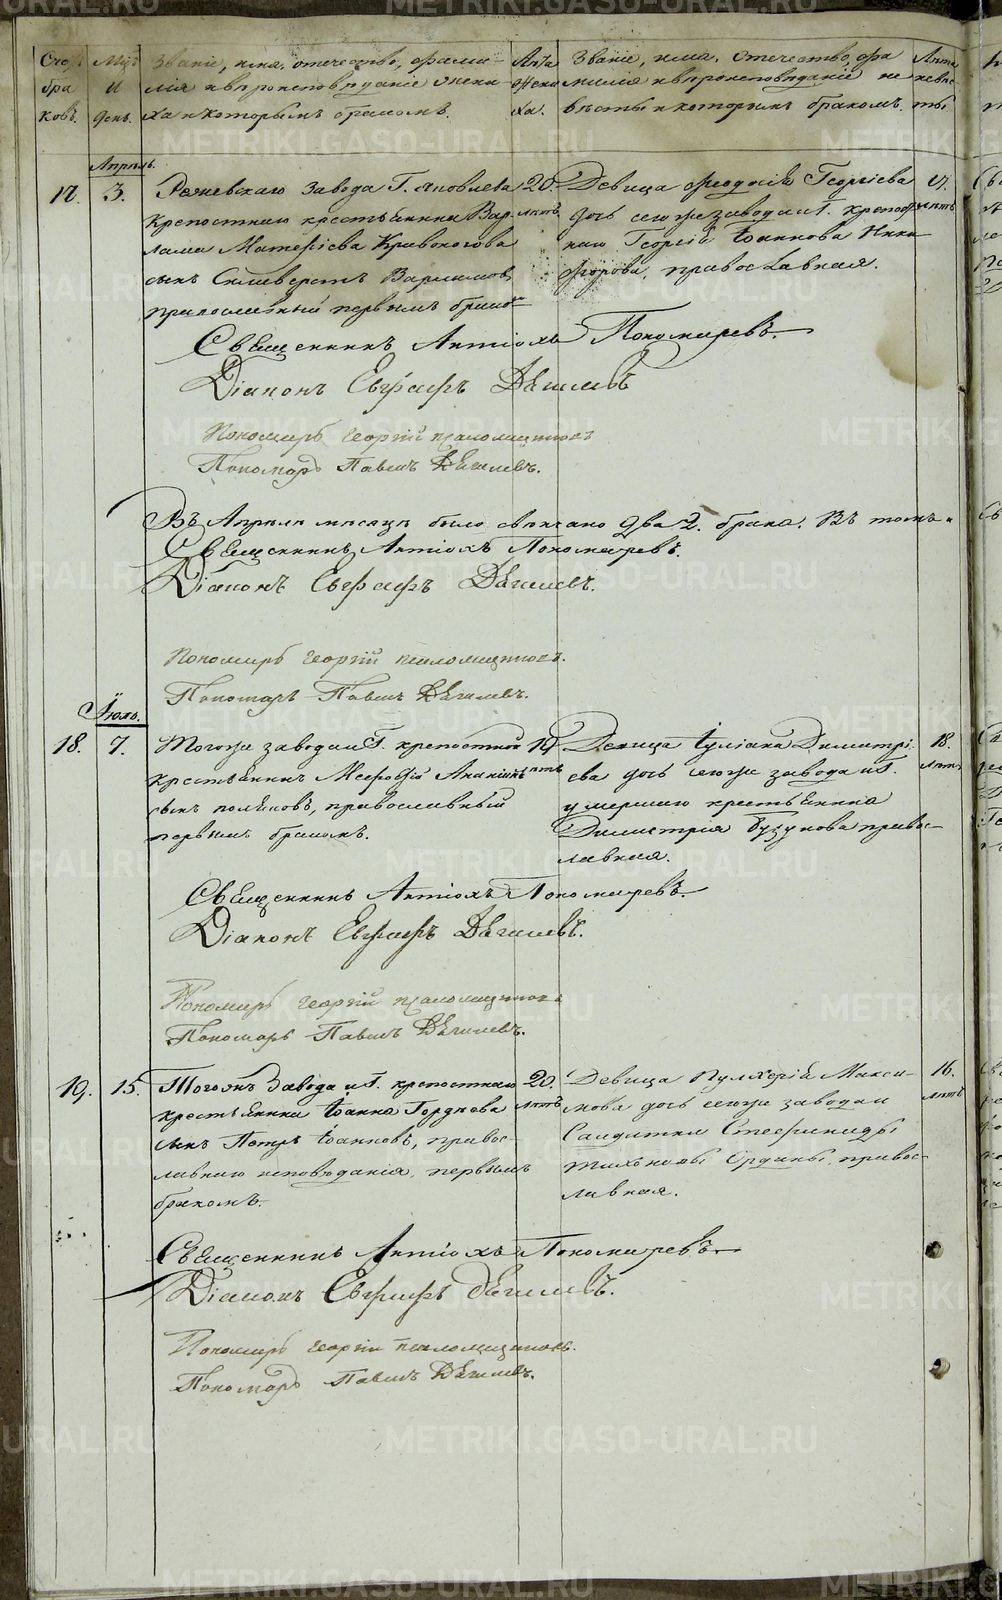 Счетъ
бра
ковъ.
Мѣц
и
день.
Званіе, имя, отечество, фами-
лія и вѣроисповѣданіе жени
ха и которымъ бракомъ.
Лѣта
жени
ха.
Званіе, имя, отечество, фа
милія и вѣроисповѣданіе не
вѣсты и которымъ бракомъ.
Лѣта
невѣс
ты
Апрѣль.
17.
3.
Режевскаго завода Г. Яковлева
крепостнаго крестьянина Вар-
лама Матфіева Кривоногова
сынъ Силиверстъ Варламовъ,
православный первымъ бракомъ
20.
лѣтъ
Девица Феодосія Георгіева
дочь сегоже завода и Г. крепост
наго Георгія Іоаннова Ники
форова, православная.
17.
лѣтъ
Священникъ Антіохъ Пономаревъ.
Діаконъ Евграфъ Дягилевъ
Пономарь Георгій Псаломщиковъ
Пономарь Павелъ Дягилевъ.
Въ Апрѣлѣ мѣсяцѣ было свенчано два 2. брака. Въ томъ
Священникъ Антіохъ Пономаревъ.
Діаконъ Евграфъ Дягилевъ.
Пономарь Георгій Псаломщиковъ.
Пономарь Павелъ Дягилевъ.
Іюль.
18.
7.
Тогоже завода и Г. крепостной
крестьянинъ Мефодій Ананіинъ
сынъ Поляковъ, православный
первымъ бракомъ.
19
лѣтъ
Девица Іуліана Димитрі-
ева дочь сегоже завода и Г.
умершаго крестьянина
Димитрія Бузунова право-
лавная.
18.
лѣтъ
Священникъ Антіохъ Пономаревъ.
Діаконъ Евграфъ Дягилевъ.
Пономарь Георгій Псаломщиковъ
Пономарь Павелъ Дягилевъ.
19.
15.
Тогожъ завода и Г. крепостнаго
крестьянина Іоанна Гордѣева
сынъ Петръ Іоанновъ, правос-
лавнаго исповѣданія, первымъ
бракомъ.
20.
лѣтъ
Девица Пулхерія Макси-
мова дочь сегоже завода и
Солдатки Стефаниды
православ-
лавная.
16.
лѣтъ
Священникъ Антіохъ Пономаревъ
Діаконъ Евграфъ Дягилевъ.
Пономарь Георгій Псаломщиковъ.
Пономарь Павелъ Дягилевъ.
METRIKI.GASO-URAL.RU